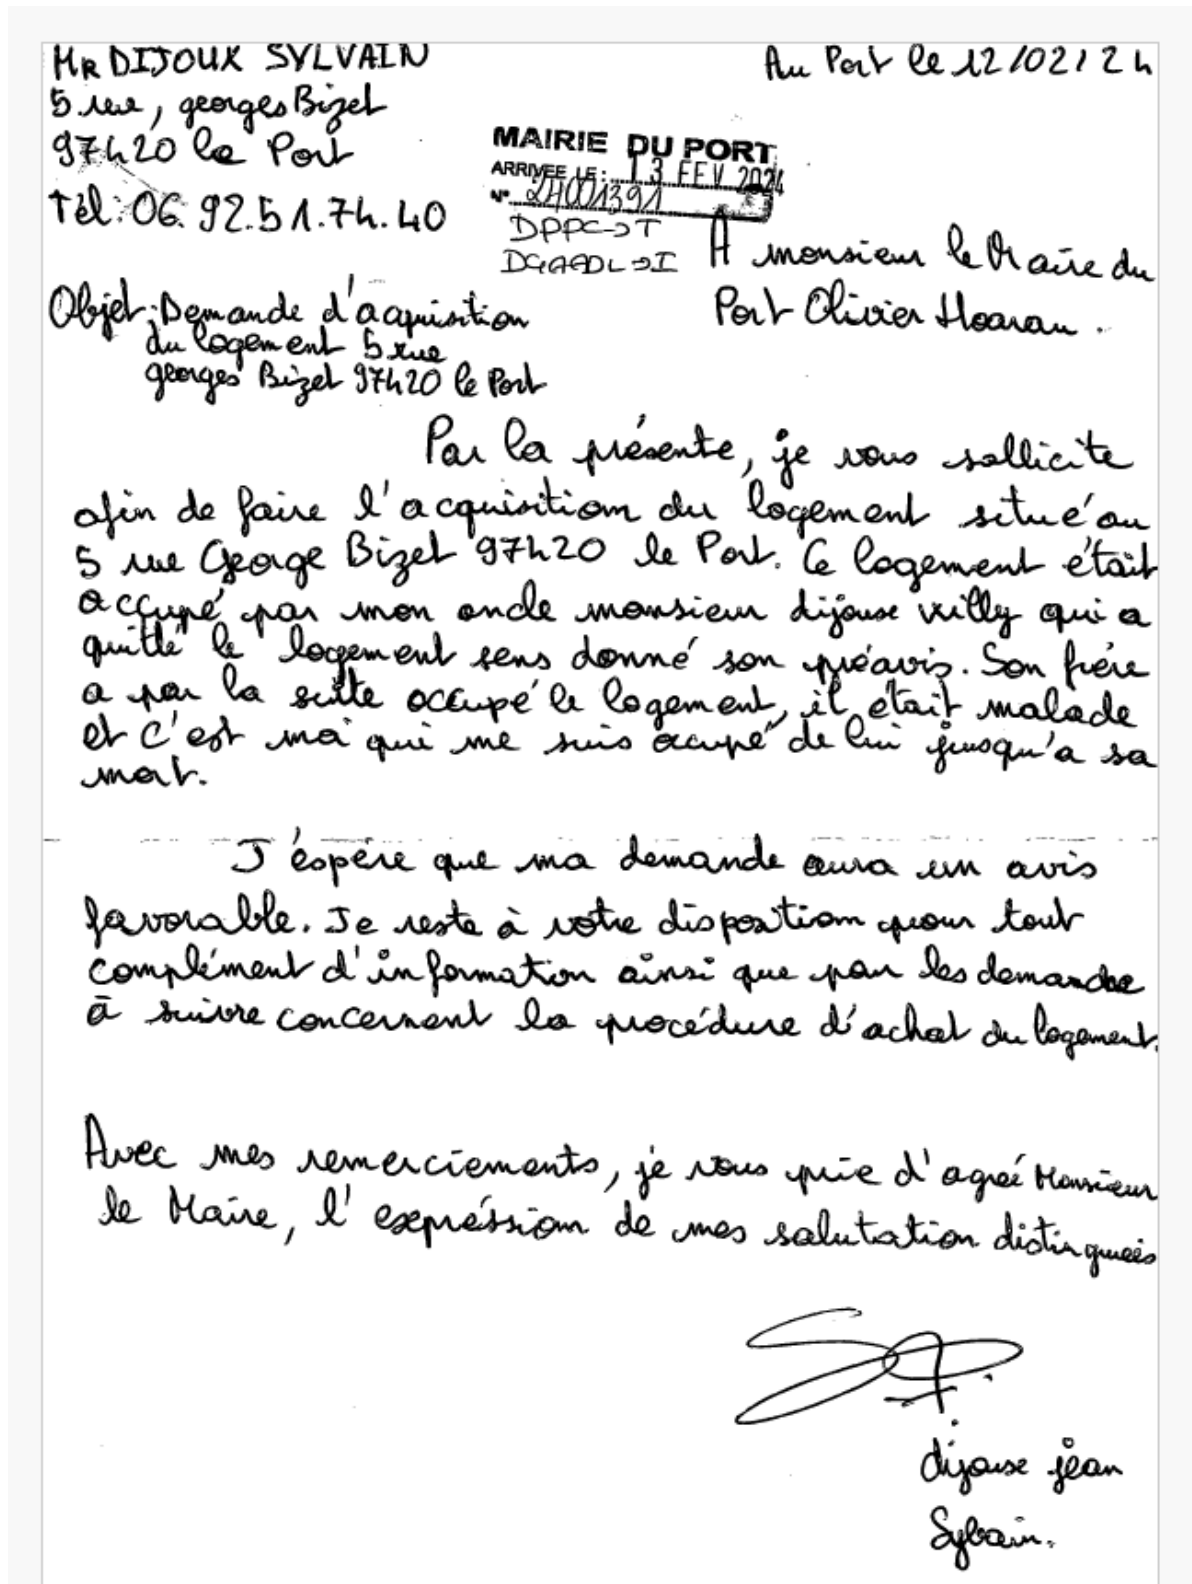 MR DIJOUX SYLVAIN
Au Port le 12/02/24
5 rue, georges Bizet
97420 le Port
MAIRIE DU PORT
ARRIVEE LE : 13 FEV 2024
N° 24001391
Tél: 06.92.51.74.40
DPPC->T
DGAADL->I
A monsieur le Maire du
Port Olivier Hoarau.
Objet: Demande d'acquisition
du logement 5 rue
georges Bizet 97420 le Port
Par la présente, je vous sollicite
afin de faire l'acquisition du logement situé au
5 rue George Bizet 97420 le Port. Ce logement était
occupé par mon oncle monsieur dijoux willy qui a
quitté le logement sens donné son préavis. Son frére
a par la suite occupé le logement, il était malade
et c'est moi qui me suis occupé de lui jusqu'a sa
mort.
J'éspére que ma demande aura un avis
favorable. Je reste à votre disposition pour tout
complément d'information ainsi que pour les demande
à suivre concernent la procédure d'achat du logement.
Avec mes remerciements, je vous prie d'agréé Monsieur
le Maire, l'expréssion de mes salutation distinguées
dijoux jean
Sylvain.